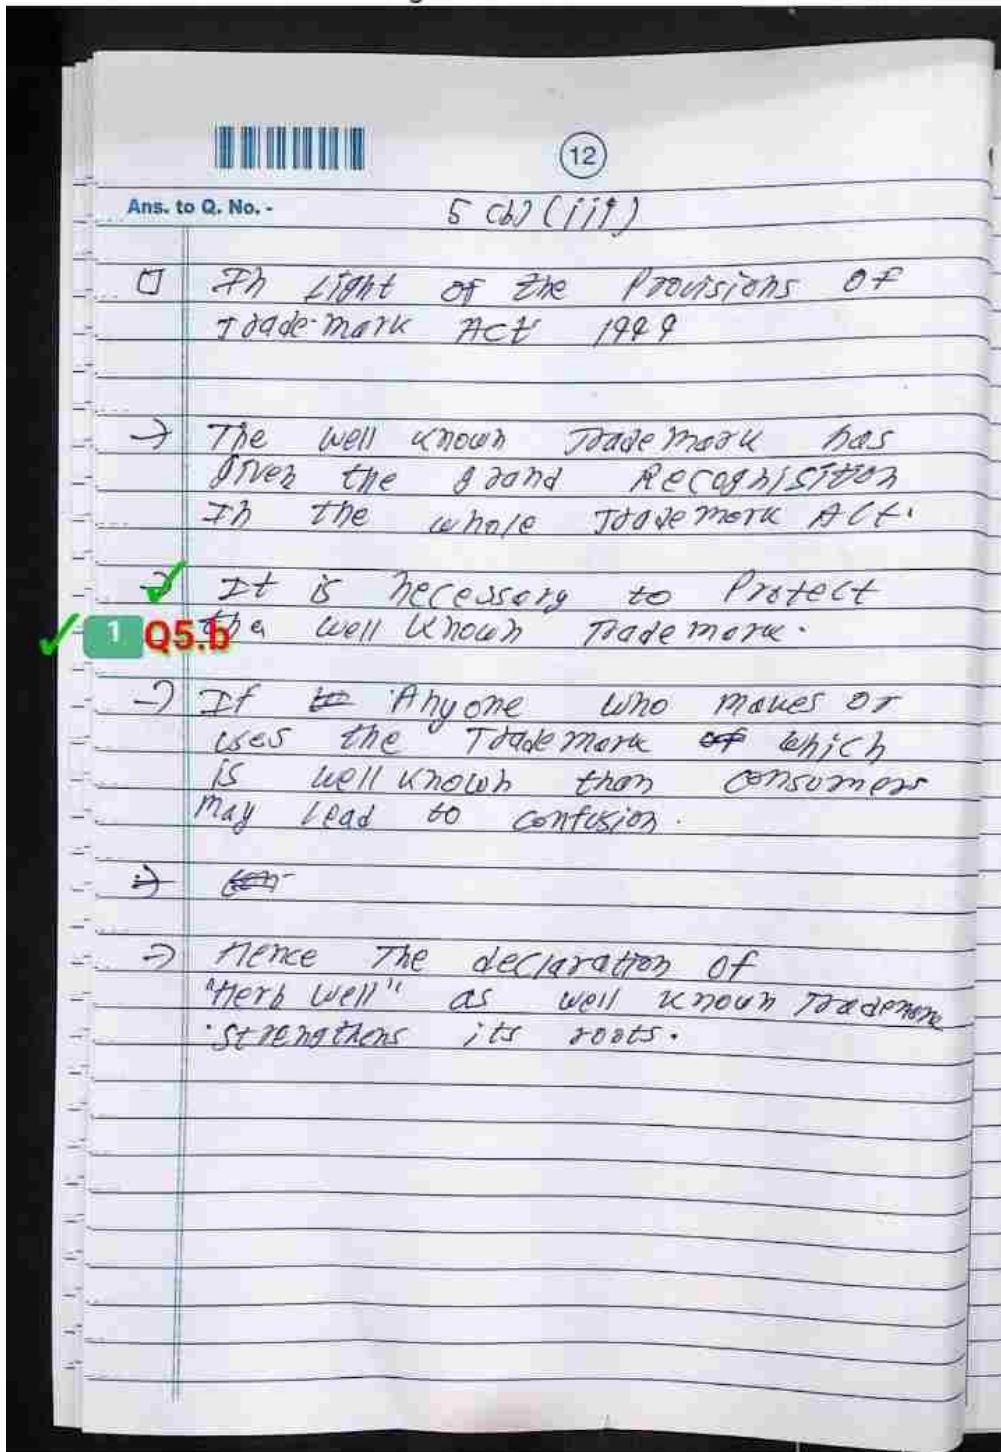 12
Ans. to Q. No. - 5 (b) (iii)
In Light of the Provisions of
Trade-mark Act 1999
→ The well known Trademark has
given the grand Recognisition
In the whole Trademark Act.
→ It is necessary to Protect
1 Q5.b the well known Trademark.
→ If Anyone who makes or
uses the Trademark which
is well known than consumers
may lead to confusion.
→ Hence The declaration of
"Herb well" as well known Trademark
strengthens its roots.